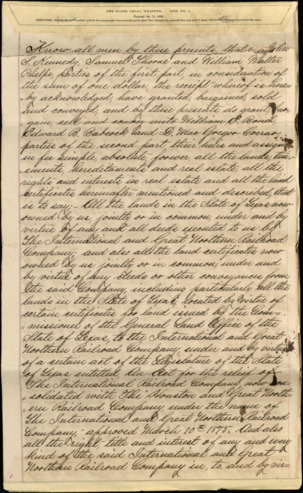 Know all men by these presents, that we John
S. Kennedy, Samuel Thorne and William Walter
Phelps, parties of the first part, in consideration of
the sum of one dollar, the receipt whereof is here-
by acknowledged, have granted, bargained, sold
and conveyed, and by these presents do grant, bar-
gain, sell and convey unto William E. Bond,
Edward R. Babcock and D. Mac Gregor
parties of the second part their heirs and assigns
in fee simple, absolute, forever, all the lands, tene-
ments, hereditaments and real estate, all the
rights and interests in real estate and all the land
certificates hereinafter mentioned and described, that
is to say: All the lands in the State of Texas now
owned by us jointly or in common, under and by
virtue of any and all deeds executed to us by
The International and Great Northern Railroad
Company, and also all the land certificates now
owned by us jointly or in common, under and
by virtue of any deeds or other conveyances from
the said Company, including particularly all the
lands in the State of Texas located by virtue of
certain certificates for land issued by the Com-
missioner of the General Land Office of the
State of Texas, to the International and Great
Northern Railroad Company under and by virtue
of a certain act of the Legislature of the State
of Texas entitled An Act for the relief of
The International Railroad Company, now con-
solidated with The Houston and Great North-
ern Railroad Company under the name of
The International and Great Northern Railroad
Company, approved March 10th 1875. And also
all the right title and interest of any and every
kind of the said International and Great
Northern Railroad Company in, to and by vir-